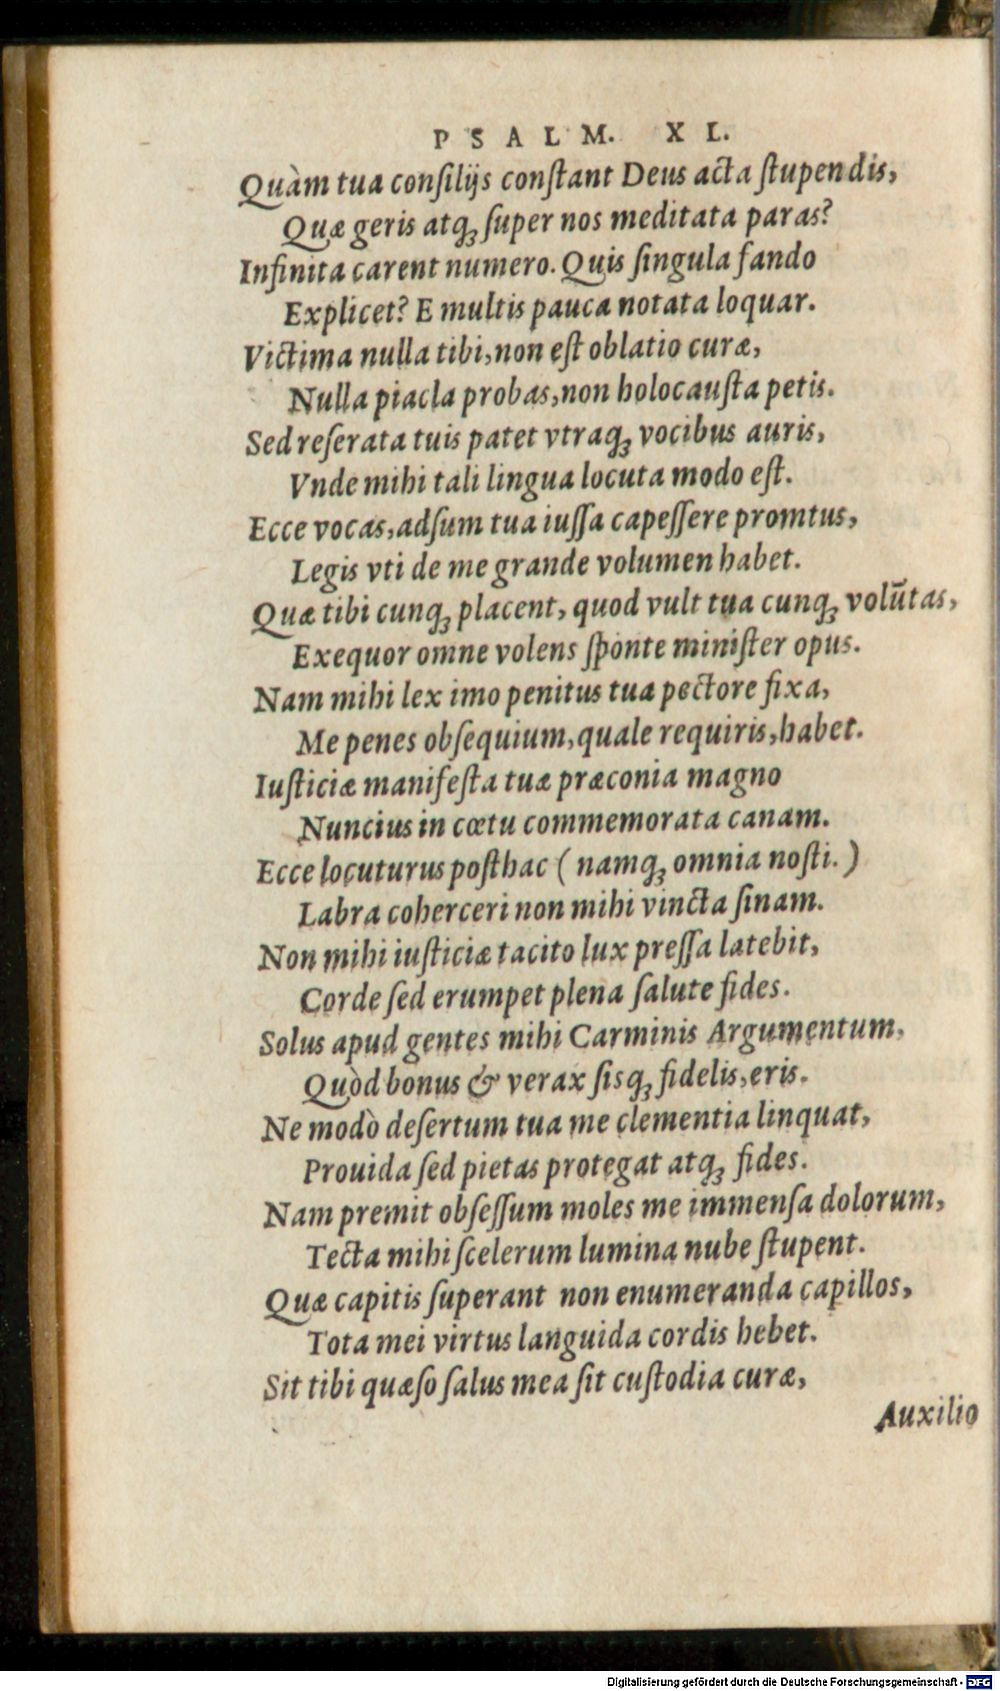 PSALM. XL.
Quàm tua consilijs constant Deus acta stupendis,
Quæ geris atq; super nos meditata paras?
Infinita carent numero. Quis singula fando
Explicet? E multis pauca notata loquar.
Victima nulla tibi, non est oblatio curæ,
Nulla piacla probas, non holocausta petis.
Sed reserata tuis patet vtraq; vocibus auris,
Vnde mihi tali lingua locuta modo est.
Ecce vocas, adsum tua iussa capessere promtus,
Legis vti de me grande volumen habet.
Quæ tibi cunq; placent, quod vult tua cunq; volūtas,
Exequor omne volens sponte minister opus.
Nam mihi lex imo penitus tua pectore fixa,
Me penes obsequium, quale requiris, habet.
Iusticiæ manifesta tuæ præconia magno
Nuncius in cœtu commemorata canam.
Ecce locuturus posthac ( namq; omnia nosti. )
Labra coherceri non mihi vincta sinam.
Non mihi iusticiæ tacito lux pressa latebit,
Corde sed erumpet plena salute fides.
Solus apud gentes mihi Carminis Argumentum,
Quòd bonus & verax sisq; fidelis, eris.
Ne modò desertum tua me clementia linquat,
Prouida sed pietas protegat atq; fides.
Nam premit obsessum moles me immensa dolorum,
Tecta mihi scelerum lumina nube stupent.
Quæ capitis superant non enumeranda capillos,
Tota mei virtus languida cordis hebet.
Sit tibi quæso salus mea sit custodia curæ,
Auxilio
Digitalisierung gefördert durch die Deutsche Forschungsgemeinschaft - DFG